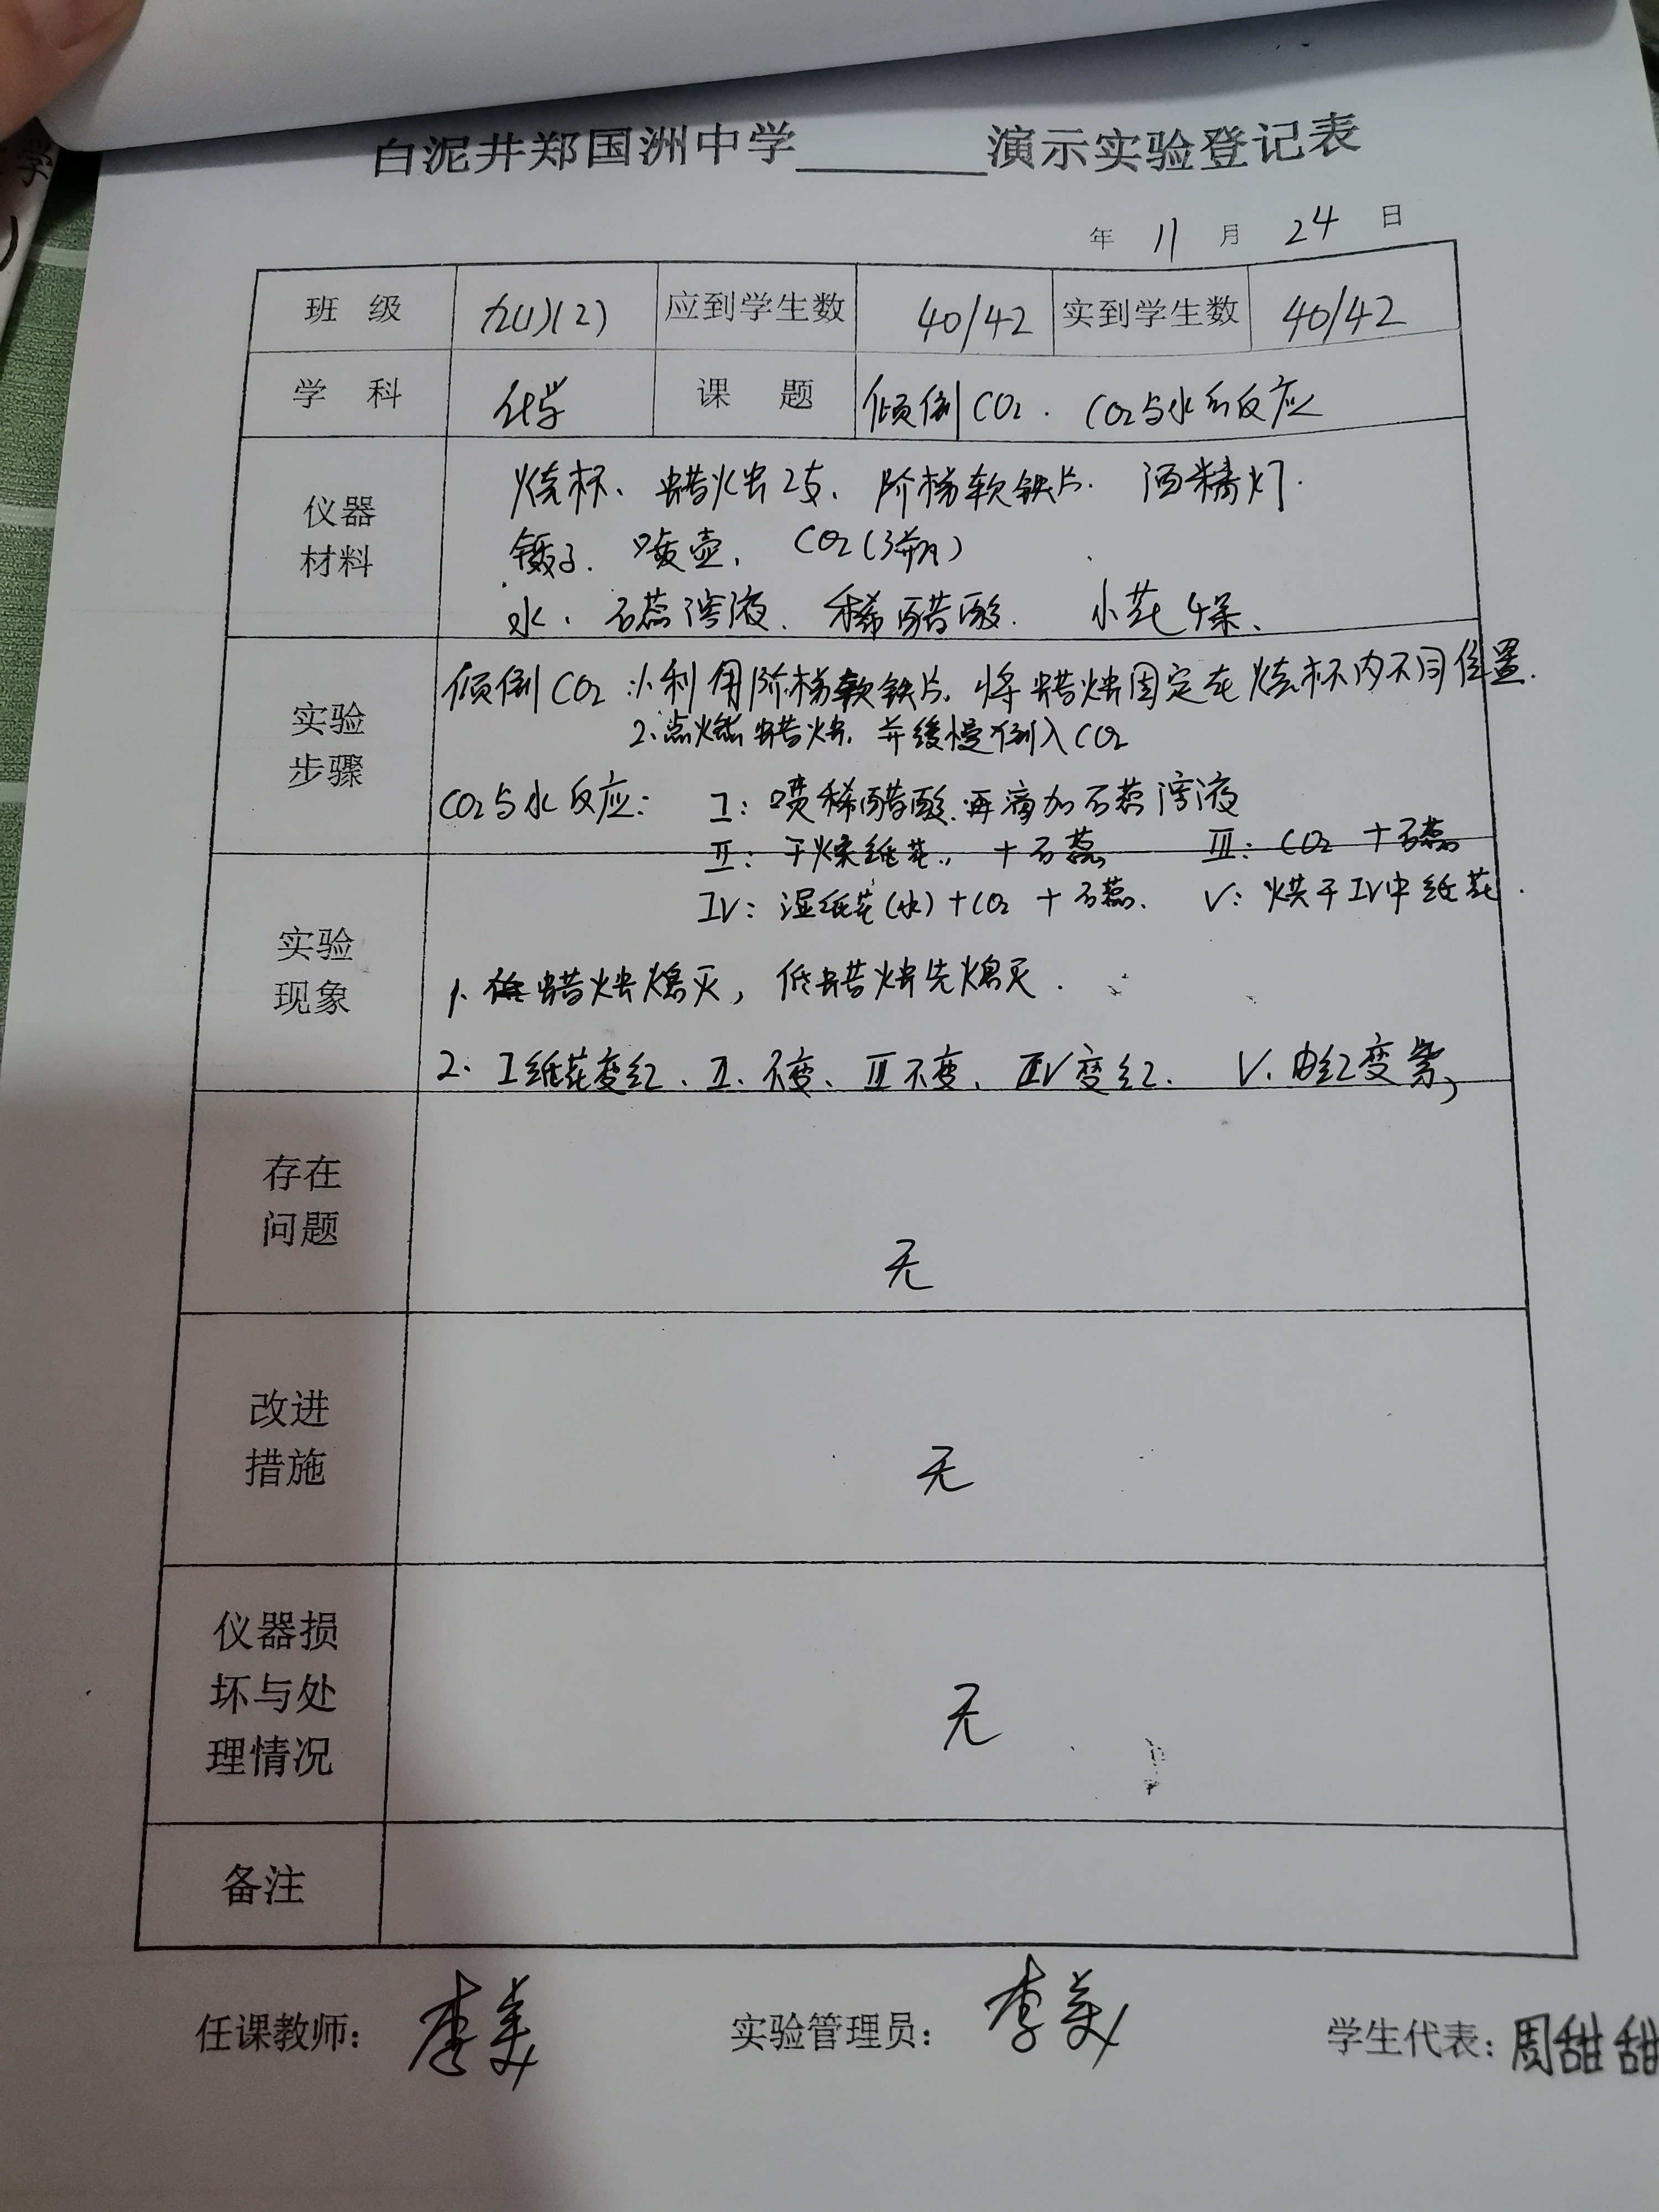 白泥井郑国洲中学______演示实验登记表
年 11 月 24 日
班 级 九(1)(2) 应到学生数 40/42 实到学生数 40/42
学 科 化学 课 题 倾倒CO2. CO2与水的反应
仪器材料
烧杯、蜡烛2支、阶梯软铁片. 酒精灯.
镊子. 喷壶, CO2(3瓶)
水、石蕊溶液、稀醋酸. 小花4朵、
实验步骤
倾倒CO2:1.利用阶梯软铁片,将蜡烛固定在烧杯内不同位置.
2.点燃蜡烛,并缓慢倒入CO2
CO2与水反应: I:喷稀醋酸.再滴加石蕊溶液
II:干燥纸花., +石蕊 III:CO2 +石蕊
IV:湿纸花(水)+CO2 +石蕊. V:烘干IV中纸花.
实验现象
1. 蜡烛熄灭,低蜡烛先熄灭.
2. I纸花变红、II、不变、III不变、IV变红. V.由红变紫,
存在问题
无
改进措施
无
仪器损坏与处理情况
无
备注
任课教师: 李美 实验管理员: 李美 学生代表:周甜甜